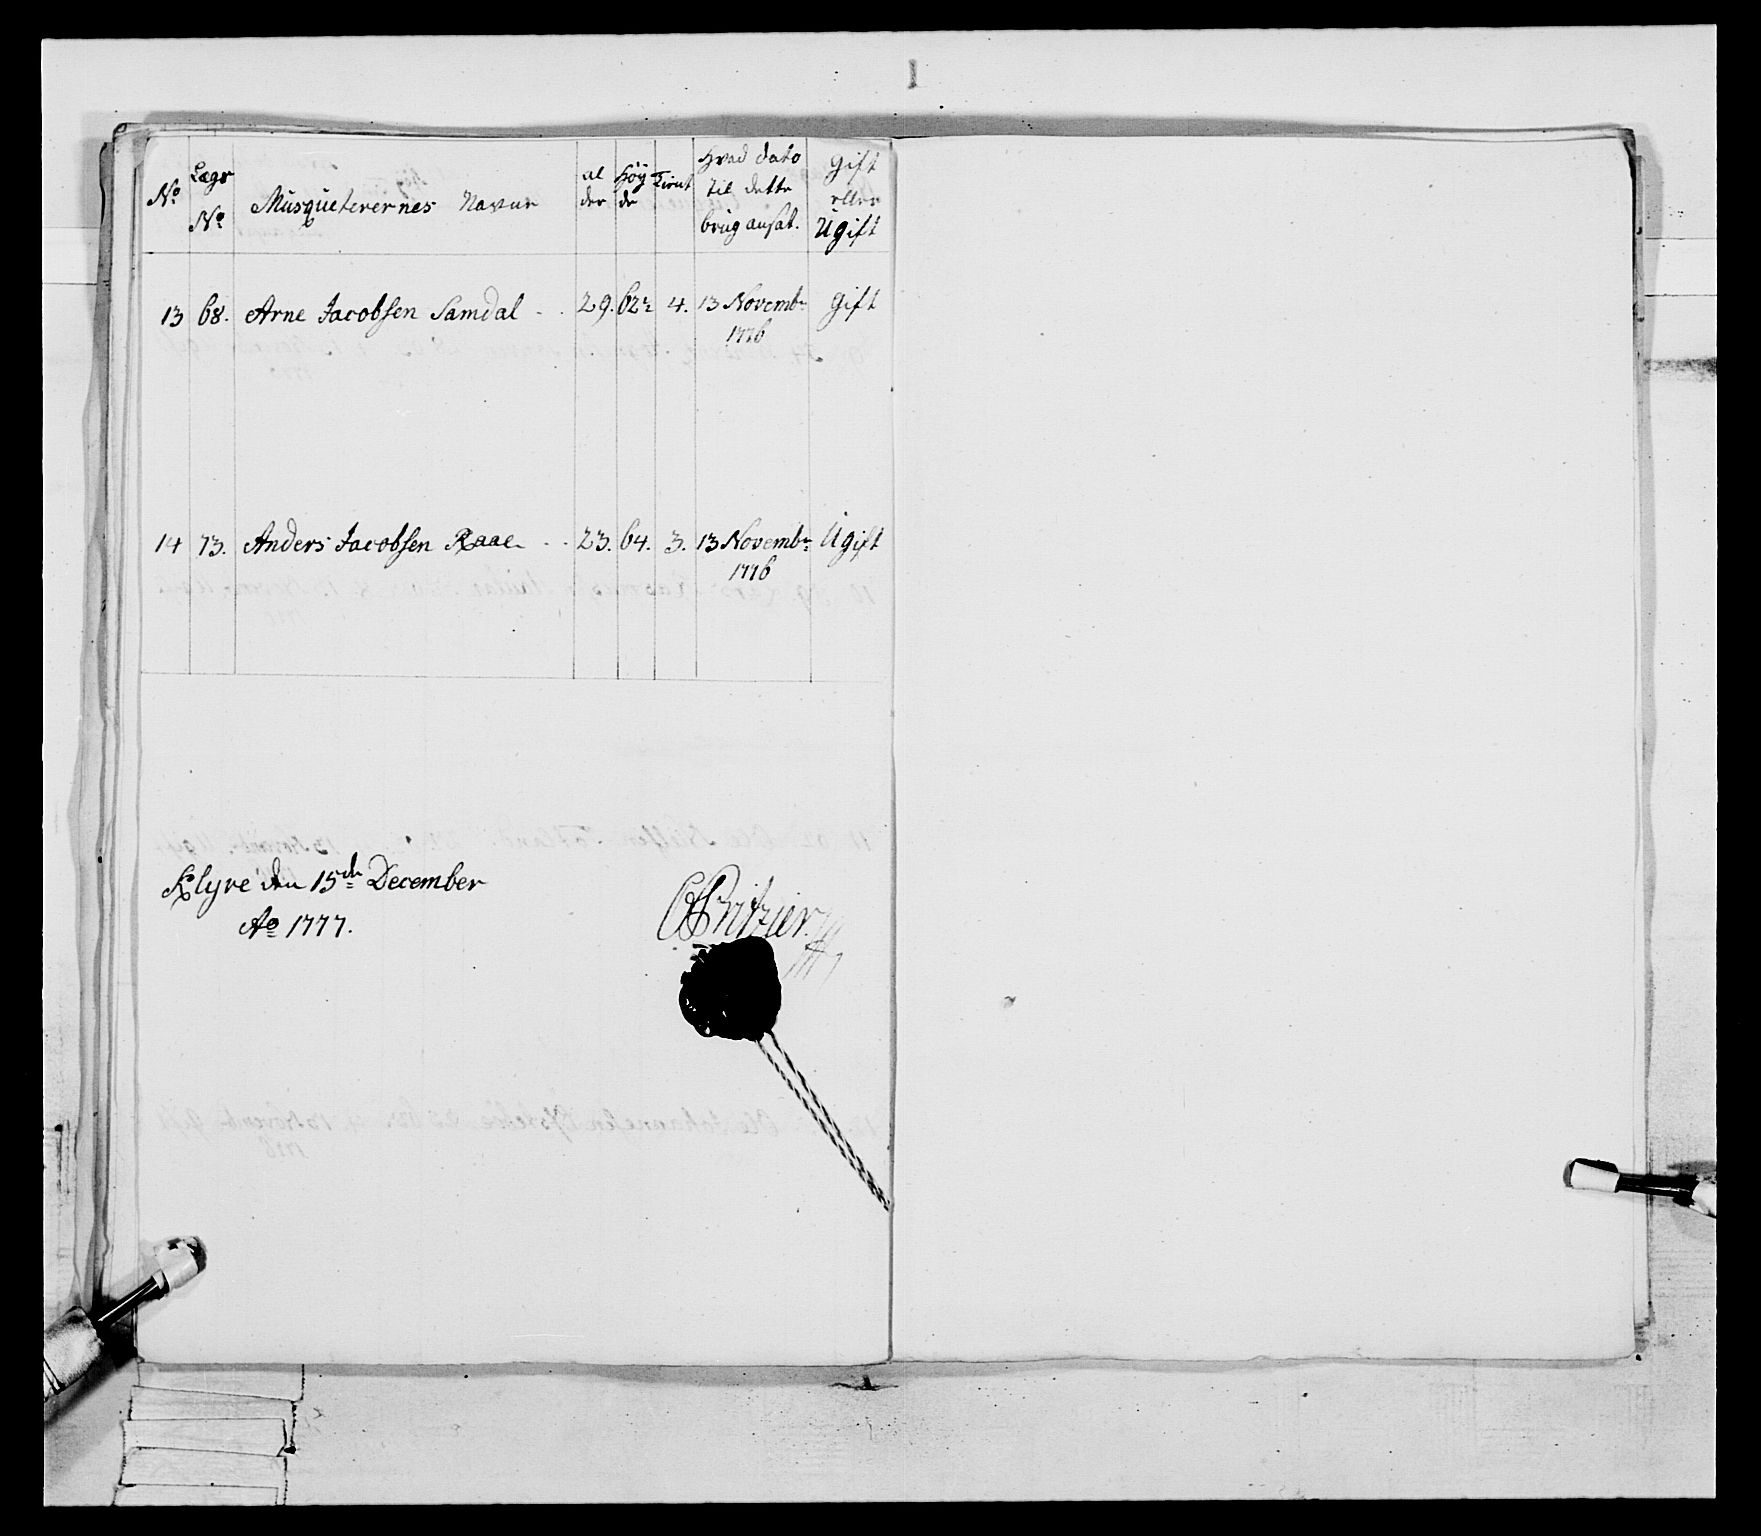 No Lægs No Musqueterernes Navne al der Høy de Tient Hvad dato til dette brug ansat. Gift eller Ugift
13 68. Arne Jacobsen Samdal - . 29. 62½ 4. 13 Novembr 1776 Gift
14 73. Anders Jacobsen Raae - . 23. 64. 3. 13 Novembr 1776 Ugift
Klyve den 15de December
Ao 1777.